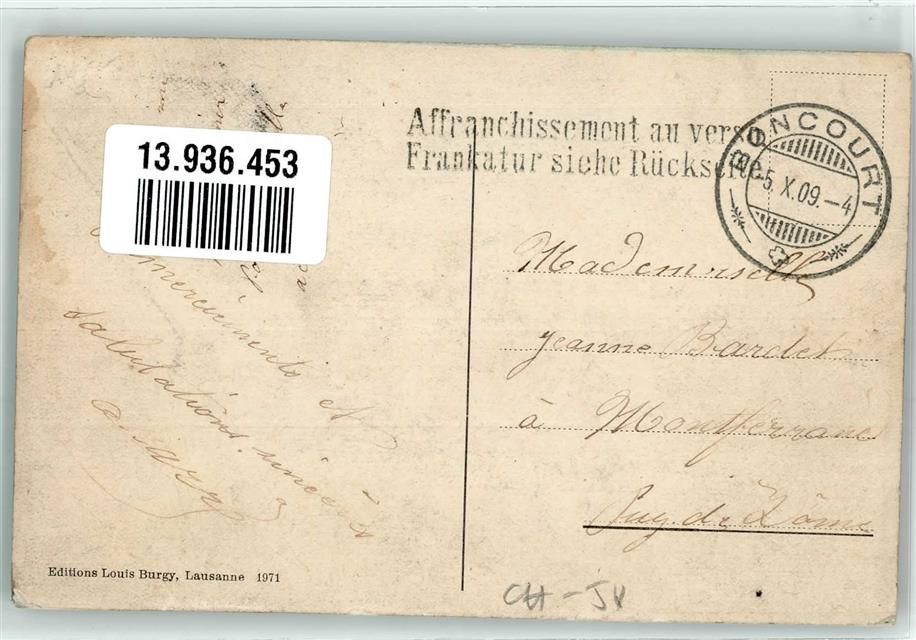 Affranchissement au verso
Frankatur siehe Rückseite
BONCOURT
-5.X.09.-4
13.936.453
Mademoiselle
Jeanne Bardet
à Montferrand
Puy. de Dôme
remerciements et
salutations sincères
Editions Louis Burgy, Lausanne 1971
CH-JU